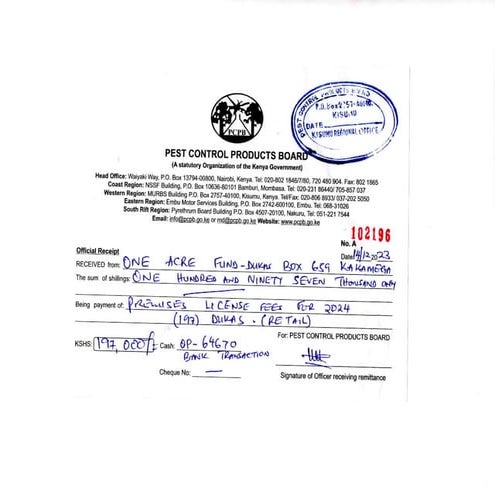 PCPB
PEST CONTROL PRODUCTS BOARD
P.O. Box 2757-40100
KISUMU
DATE
KISUMU REGIONAL OFFICE
PEST CONTROL PRODUCTS BOARD
(A statutory Organization of the Kenya Government)
Head Office: Waiyaki Way, P.O. Box 13794-00800, Nairobi, Kenya. Tel: 020-802 1846/7/80, 720 480 904. Fax: 802 1865
Coast Region: NSSF Building, P.O. Box 10636-80101 Bamburi, Mombasa. Tel: 020-231 8644/ 705-857 037
Western Region: MURBS Building P.O. Box 2757-40100, Kisumu, Kenya. Tel/Fax:020-806 8933/ 037-202 5050
Eastern Region: Embu Motor Services Building, P.O. Box 2742-600100, Embu. Tel: 068-31026
South Rift Region: Pyrethrum Board Building P.O. Box 4507-20100, Nakuru, Tel: 051-221 7544
Email: info@pcpb.go.ke or md@pcpb.go.ke Website: www.pcpb.go.ke
No. A 102196
Official Receipt
Date 14/12 2023
RECEIVED from: ONE ACRE FUND-DUKAS BOX 659 KAKAMEGA
The sum of shillings: ONE HUNDRED AND NINETY SEVEN THOUSAND ONLY
Being payment of: PREMISES LICENSE FEES FOR 2024
(197) DUKAS. (RETAIL)
For: PEST CONTROL PRODUCTS BOARD
KSHS: 197,000/= Cash: OP-64670
BANK TRANSACTION
Cheque No: —
Signature of Officer receiving remittance